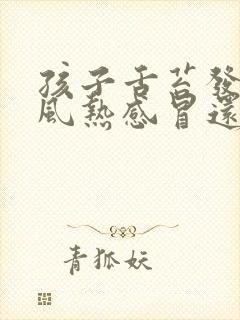 孩子舌苔發
風熱感冒還
青狐妖